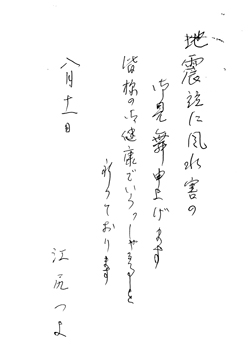 地震並に風水害の
御見舞申上げます
皆様の御健康でいらっしゃること
祈っております
八月十一日
江尻つよ